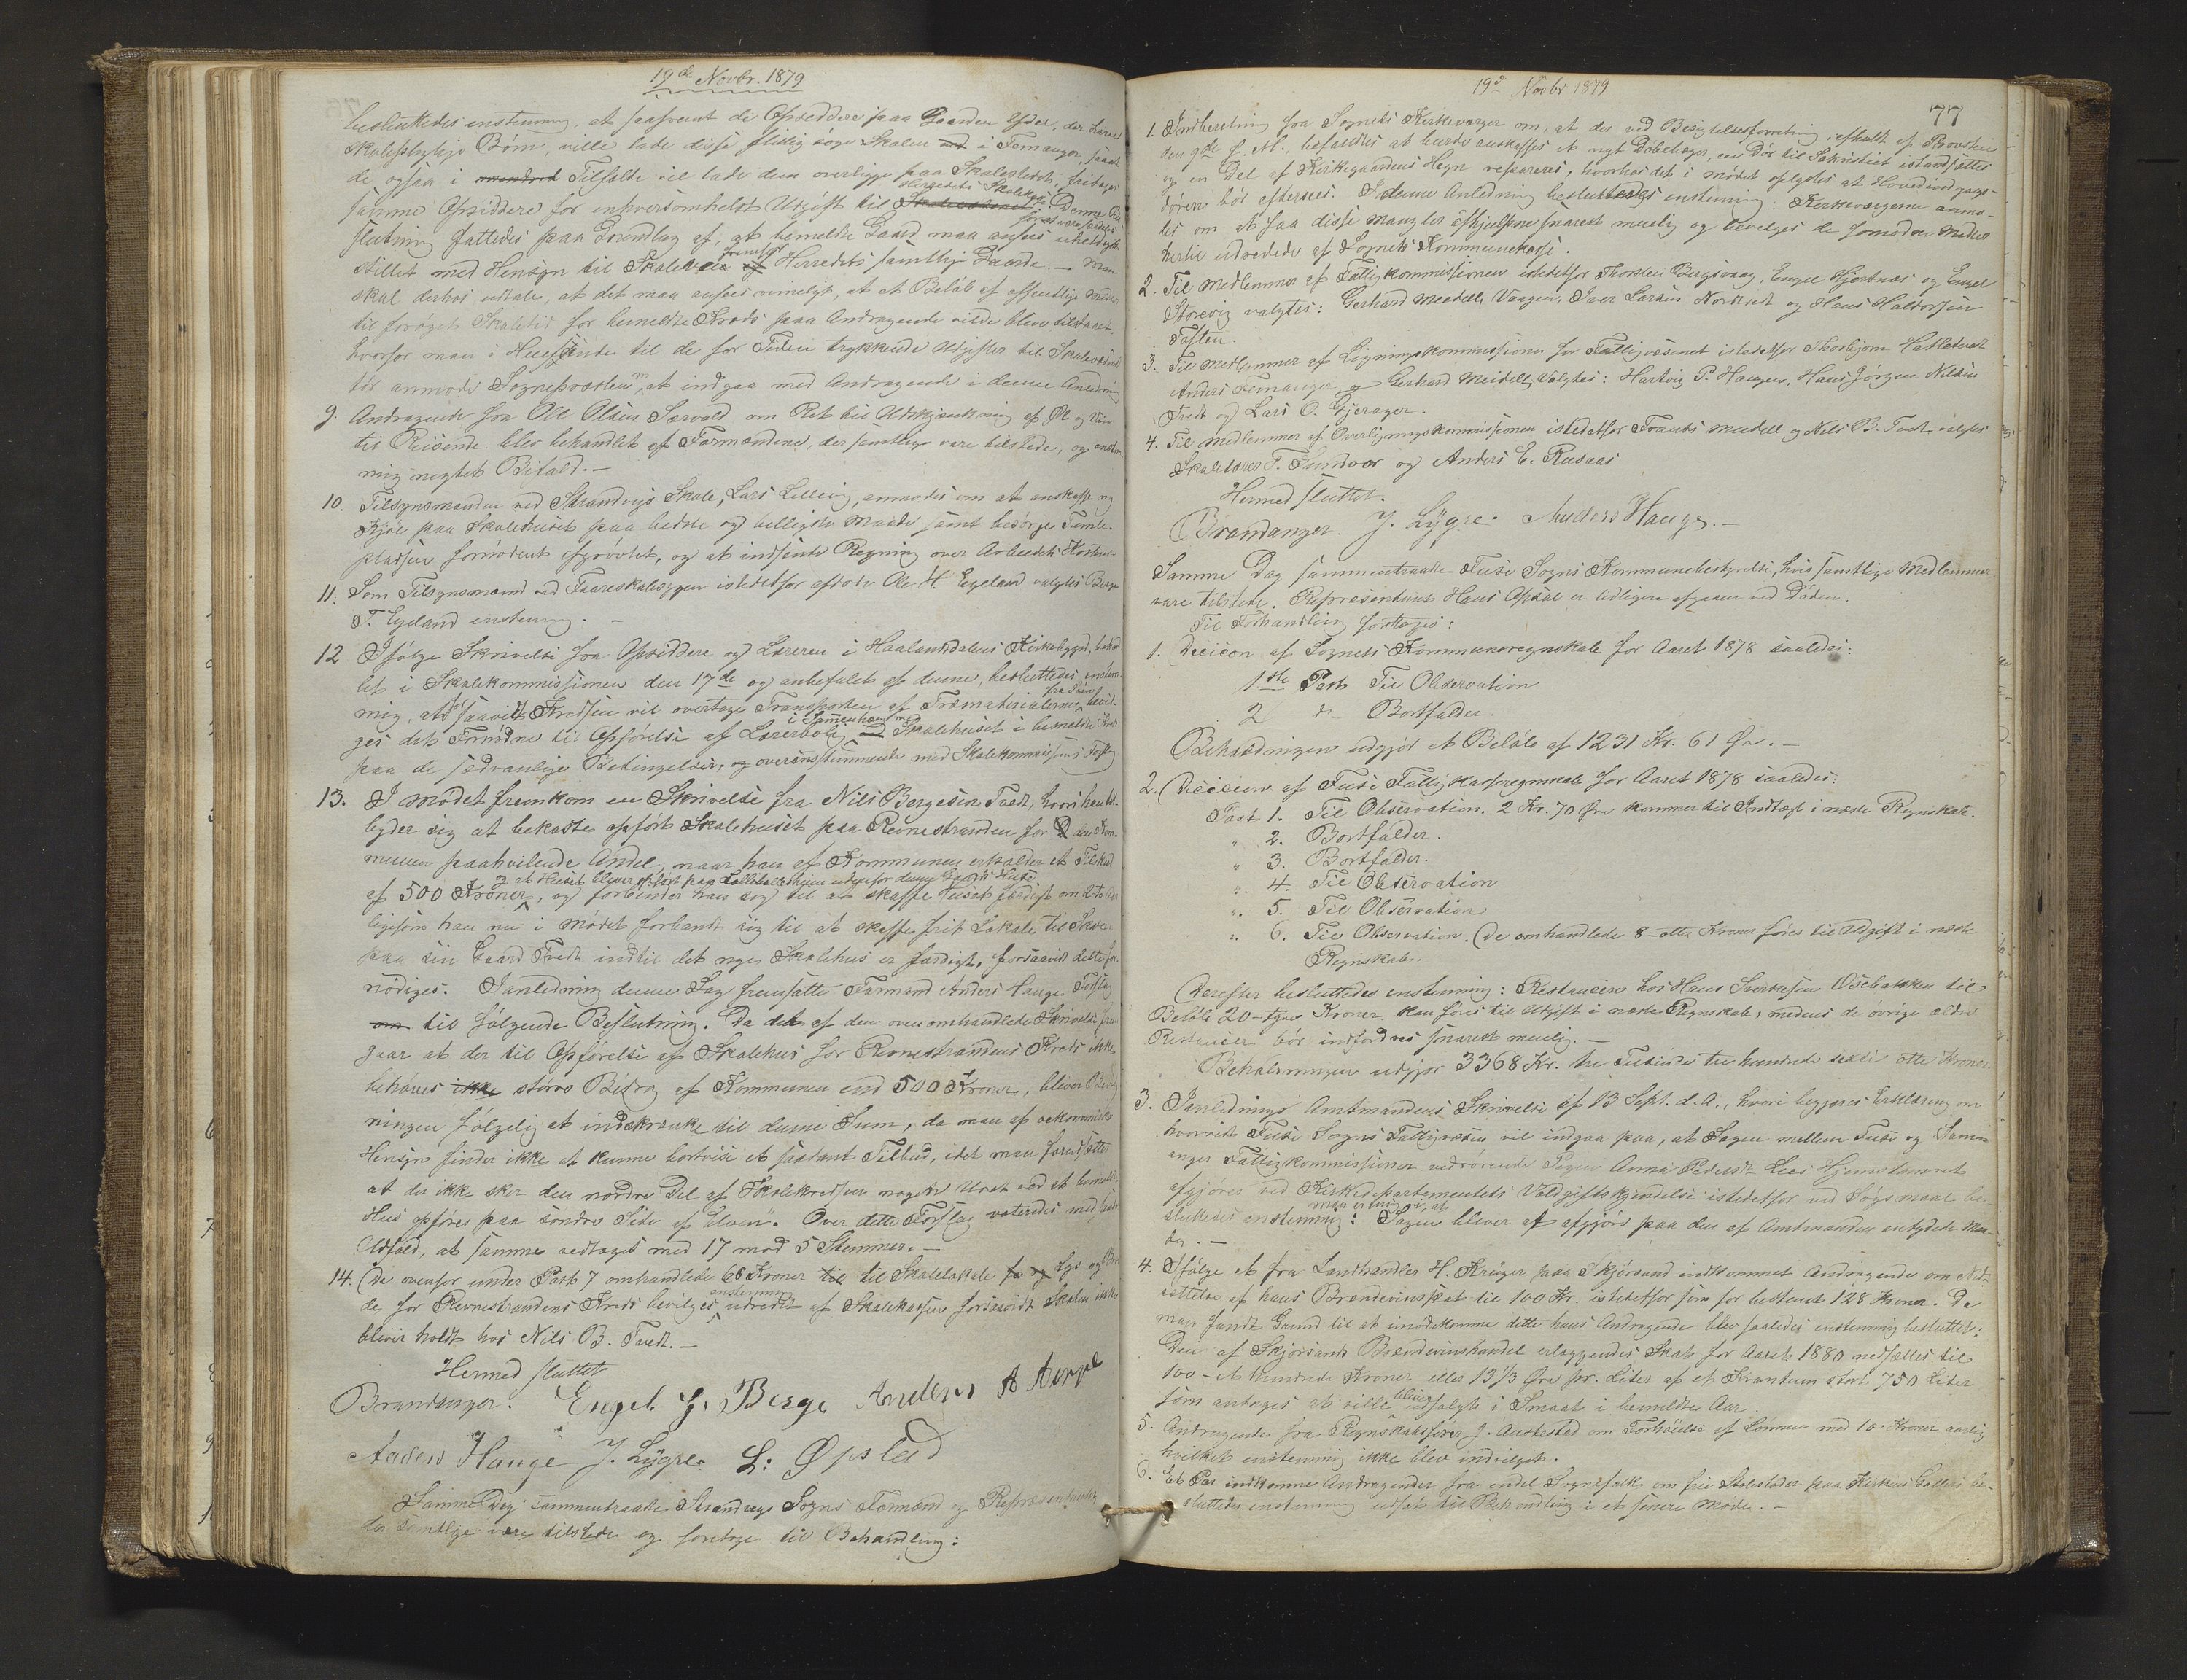 19de Novbr. 1879
besluttedes enstemmig, at saafremt de Opsiddere paa Gaarden Ølfder, der have
skolepligtige Børn, ville lade disse flittig søge Skolen i Femanger, saa
de ogsaa i Tilfælde vil lade dem overligge paa Skolestedet, fritages
samme Opsiddere for enhversomhelst Udgift til Herredets Skolekasse. Denne Be-
slutning fattedes paa Grundlag af, at bemeldte Gaard maa ansees uheldigst
stillet med Hensyn til Skolen fremfor Herredets samtlige Gaarde. — Man
skal derhos udtale, at det maa ansees rimeligt, at et Beløb af offentlige Midler
til forøget Skoletid for bemeldte Kreds paa Andragende vilde blive tilstaaet,
hvorfor man i Henseende til de for Tiden trykkende Udgifter til Skolevæsenet
tør anmode Sognepræsten om at indgaa med Andragende i denne Anledning
9. Andragende fra Ole Olsen Sævold om Ret til Udskjænkning af Øl og Vin
til Reisende blev behandlet af Formændene, der samtlige vare tilstede, og enstem-
mig negtet Bifald. —
10. Tilsynsmanden ved Strandvigs Skole, Lars Lillevig, anmodes om at anskaffe ny
Kjøle paa Skolehuset paa bedste og billigste Maade samt besørge Tomte-
pladsen fornødent opgrøvtet, og at indsende Regning over Arbeidets Kostende
11. Som Tilsynsmand ved Faareskolebyggen istedetfor afdøde Ole H. Eegeland valgtes Berge
T. Eegeland enstemmig. —
12 Ifølge Skrivelse fra Opsiddere og Læreren i Haalandsdalens Kirkebygd, behand-
let i Skolekommissionen den 17de og anbefalet af denne, besluttedes enstem-
mig, at forsaavidt Kredsen vil overtage Transporten af Træmaterialierne fra Søen, bevil-
ges det Fornødne til Opførelse af Lærerbolig i Sammenhæng med Skolehuset i bemeldte Kreds
paa de sædvanlige Betingelser, og overensstemmende med Skolekommissionens Forslag
13. I Mødet fremkom en Skrivelse fra Nils Bergesen Tvedt, hvori han til-
byder sig at bekoste opført Skolehuset paa Revnestranden for den Kom-
munen paahvilende Andel, naar han af Kommunen erholder et Tilskud
og at Huset bliver opført paa udenfor denne Gaards Huse
af 500 Kroner, og forbinder han sig til at skaffe Huset færdigt om 2 Aar
ligesom han nu i Mødet forbandt sig til at skaffe frit Lokale til Skolen
paa sin Gaard Tvedt indtil det nye Skolehus er færdigt, forsaavidt dette for-
nødiges. I Anledning denne Sag fremsatte Formand Anders Hauge Forslag
til følgende Beslutning. Da det af den ovenomhandlede Skrivelse frem-
gaar at der til Opførelse af Skolehus for Revnestrandens Kreds ikke
behøves større Bidrag af Kommunen end 500 Kroner, bliver Bevilg-
ningen følgelig at indskrænke til denne Sum, da man af oekonomiske
Hensyn finder ikke at kunne bortvise et saadant Tilbud, idet man forudsætter
at der ikke sker den nordre Del af Skolekredsen nogen Uret ved at bemeldte
Hus opføres paa søndre Side af "Elven". Over dette Forslag voteredes med
Udfald, at samme vedtoges med 17 mod 5 Stemmer. —
14. De ovenfor under Post 7 omhandlede 68 Kroner til Skolelokale Lys og Bræn-
de for Revnestrandens Kreds bevilges enstemmig udredet af Skolekassen forsaavidt Skolen ikke
bliver holdt hos Nils B. Tvedt. —
Hermed sluttet
Brandanger. Engel J. Berge Anders A
Anders Hauge J. Lygre. L: Øpstad
Samme Dag sammentraadte Strandvigs Sogns Formænd og Repræsentanter,
der samtlige vare tilstede og foretoge til Behandling:
19d Novbr 1879
77
1. Indberetning fra Sognets Kirkeværger om, at der ved Besigtelsesforretning afholdt af Provsten
den 9de f. M., befandtes at burde anskaffes et nyt Døbebæger, en Dør til Sakristiet istandsættes
og en Del af Kirkegaardens Hegn repareres, hvorhos det i Mødet oplystes at Hovedindgangs-
døren bør efterses. I denne Anledning besluttedes enstemmig: Kirkeværgerne anmo-
des om at faa disse Mangler afhjulpne snarest muelig og bevilges de fornødne Midler
hertil udredede af Sognets Kommunekasse.
2. Til Medlemmer af Fattigkommissionen istedetfor Thorsten Bergsvaag, Engel Hjortnæs og Engel
Storevig valgtes: Gerhard Meidell, Vaagen, Iver Larsen Nordtvedt og Hans Haldorsen
Toften.
3. Til Medlemmer af Ligningskommissionen for Fattigvæsenet istedetfor Thorbjørn Hatletvedt
Anders Femanger og Gerhard Meidell, valgtes: Hartvig P. Haugen, Hans Jørgen Nilsen
Tvedt og Lars O. Gjerager.
4. Til Medlemmer af Overligningskommissionen istedetfor Frants Meidell og Nils B. Tvedt valgtes
Skolelærer T. Sundvor og Anders E. Rusaas
Hermed sluttet.
Brandanger. J. Lygre. Anders Hauge. —
Samme Dag sammentraadte Fuse Sogns Kommunebestyrelse, hvis samtlige Medlemmer
vare tilstede. Repræsentant Hans Opdal er tidligere afgaaet ved Døden.
Til Forhandling foretoges:
1. Decision af Sognets Kommuneregnskab for Aaret 1878 saaledes:
1ste Post Til Observation
2 do Bortfalder.
Beholdningen udgjør et Beløb af 1231 Kr. 61 Øre. —
2. Decision af Fuse Fattigkasseregnskab for Aaret 1878 saaledes:
Post 1. Til Observation. 2 Kr. 70 Øre kommer til Indtægt i næste Regnskab.
" 2. Bortfalder.
" 3. Bortfalder.
" 4. Til Observation
" 5. Til Observation
" 6. Til Observation. De omhandlede 8 – otte Kroner føres til Udgift i næste
Regnskab.
Derefter besluttedes enstemmig: Restancen hos Hans Sverkesen Osebakken til
Beløb 20 – tyve Kroner kan føres til Udgift i næste Regnskab, medens de øvrige ældre
Restancer bør indfordres snarest muelig. —
Beholdningen udgjør 3368 Kr. tre Tusinde tre hundrede sexti otte Kroner.
3. I Anlednings Amtmandens Skrivelse af 13 Sept. d. A., hvori begjæres Erklæring om
hvorvidt Fuse Sogns Fattigvæsen vil indgaa paa, at Sagen mellem Fuse og Samn-
anger Fattigkommissioner vedrørende Pigen Anna Pedersdtr. Lies Hjemstavnsret
afgjøres ved Kirkedepartementets Voldgiftskjendelse istedetfor ved Søgsmaal be-
sluttedes enstemmig: Man er enig i, at Sagen bliver at afgjøre paa den af Amtmanden antydede Maa-
de. —
4. Ifølge et fra Landhandler H. Krüger paa Skjørsand indkommet Andragende om Ned-
sættelse af hans Brændevinsskat til 100 Kr. istedetfor som før bestemt 128 Kroner. Da
man fandt Grund til at imødekomme dette hans Andragende blev saaledes enstemmig besluttet:
Den af Skjørsands Brændevinshandel erlæggendes Skat for Aaret 1880 nedsættes til
100 – et hundrede Kroner eller 13 1/3 Øre pr. Liter af et Kvantum stort 750 Liter
som antages at ville blive udsolgt i Smaat i bemeldte Aar.
5. Andragende fra Regnskabsfører J. Austestad om Forhøielse af Lønnen med 10 Kroner aarlig
hvilket enstemmig ikke blev indvilget.
6. Et Par indkomne Andragender fra endel Sognefolk om frie Stolestader paa Kirkens Galleri be-
sluttedes enstemmig udsat til Behandling i et senere Møde. —